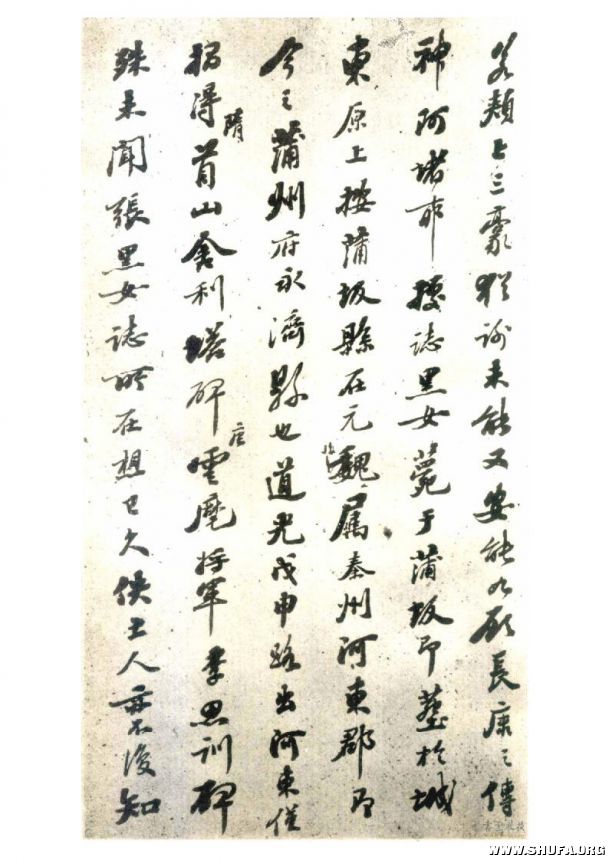 若頰上三豪猶謝未能又安能如顧長康之傳
神阿堵耶據誌黑女薨于蒲坂即葬於城
東原上按蒲坂縣在元北魏屬秦州河東郡即
今之蒲州府永濟縣也道光戊申路出河東僅
搨得隋首山舍利塔碑唐雲麾將軍李思訓碑
殊未聞張黑女誌所在想已久佚土人亦不復知
WWW.SHUFA.ORG